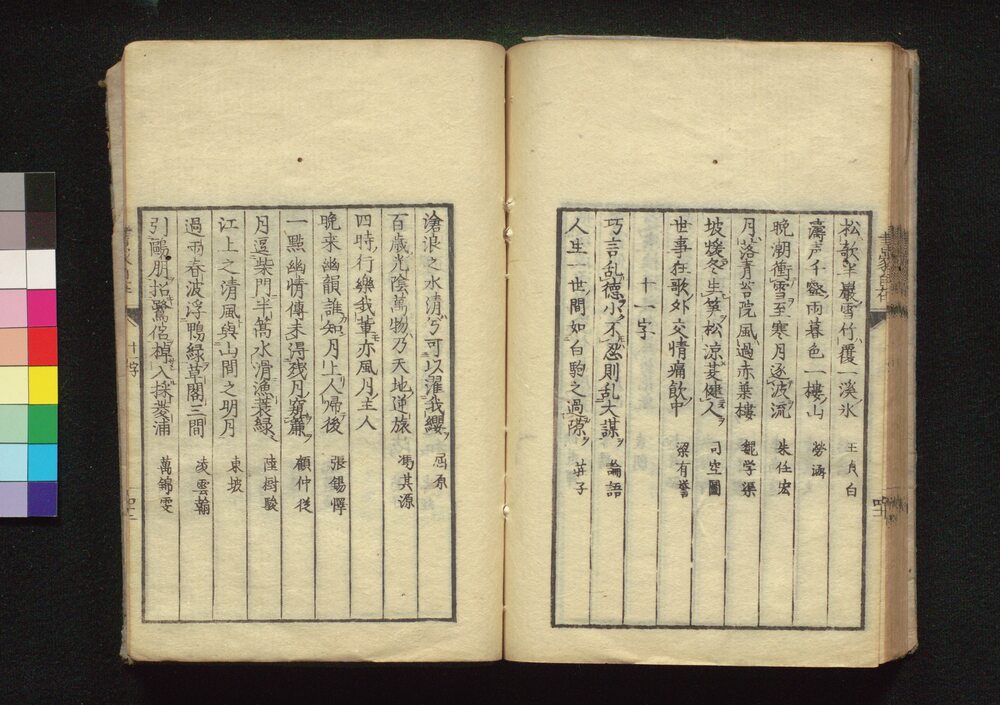 松欹半巌雪竹覆一溪氷 王貞白
濤声千壑雨暮色一樓山 勞涵
晩潮衝雪至寒月逐波流 朱任宏
月落青苔院風過赤葉樓 魏学渠
坡煖冬生笋松涼夏健人 司空圖
世事狂歌外交情痛飲中 梁有誉
十一字
巧言乱德小不忍則乱大謀 論語
人生一世間如白駒之過隙 莊子
滄浪之水清兮可以濯我纓 屈原
百歳光陰萬物乃天地逆旅 馮其源
四時行樂我輩亦風月主人
晩来幽韻誰知月上人帰後 張錫懌
一點幽情傳未得残月窺簾 顧仲従
月逗柴門半篙水滑漁蓑緑 陸樹駿
江上之清風與山間之明月 東坡
過雨春波浮鴨緑草閣三間 凌雲翰
引鷗朋招鷺侶棹入採菱浦 萬錦雯
十一字